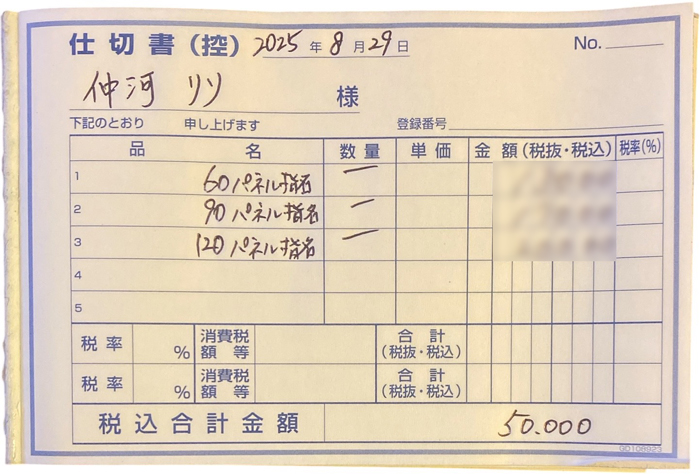 仕切書(控) 2025年8月29日 No.
仲河 リリ 様
下記のとおり 申し上げます 登録番号
品名 数量 単価 金額(税抜・税込) 税率(%)
1 60パネル指名 一
2 90パネル指名 一
3 120パネル指名 一
4
5
税率 % 消費税額等 合計(税抜・税込)
税率 % 消費税額等 合計(税抜・税込)
税込合計金額 50.000